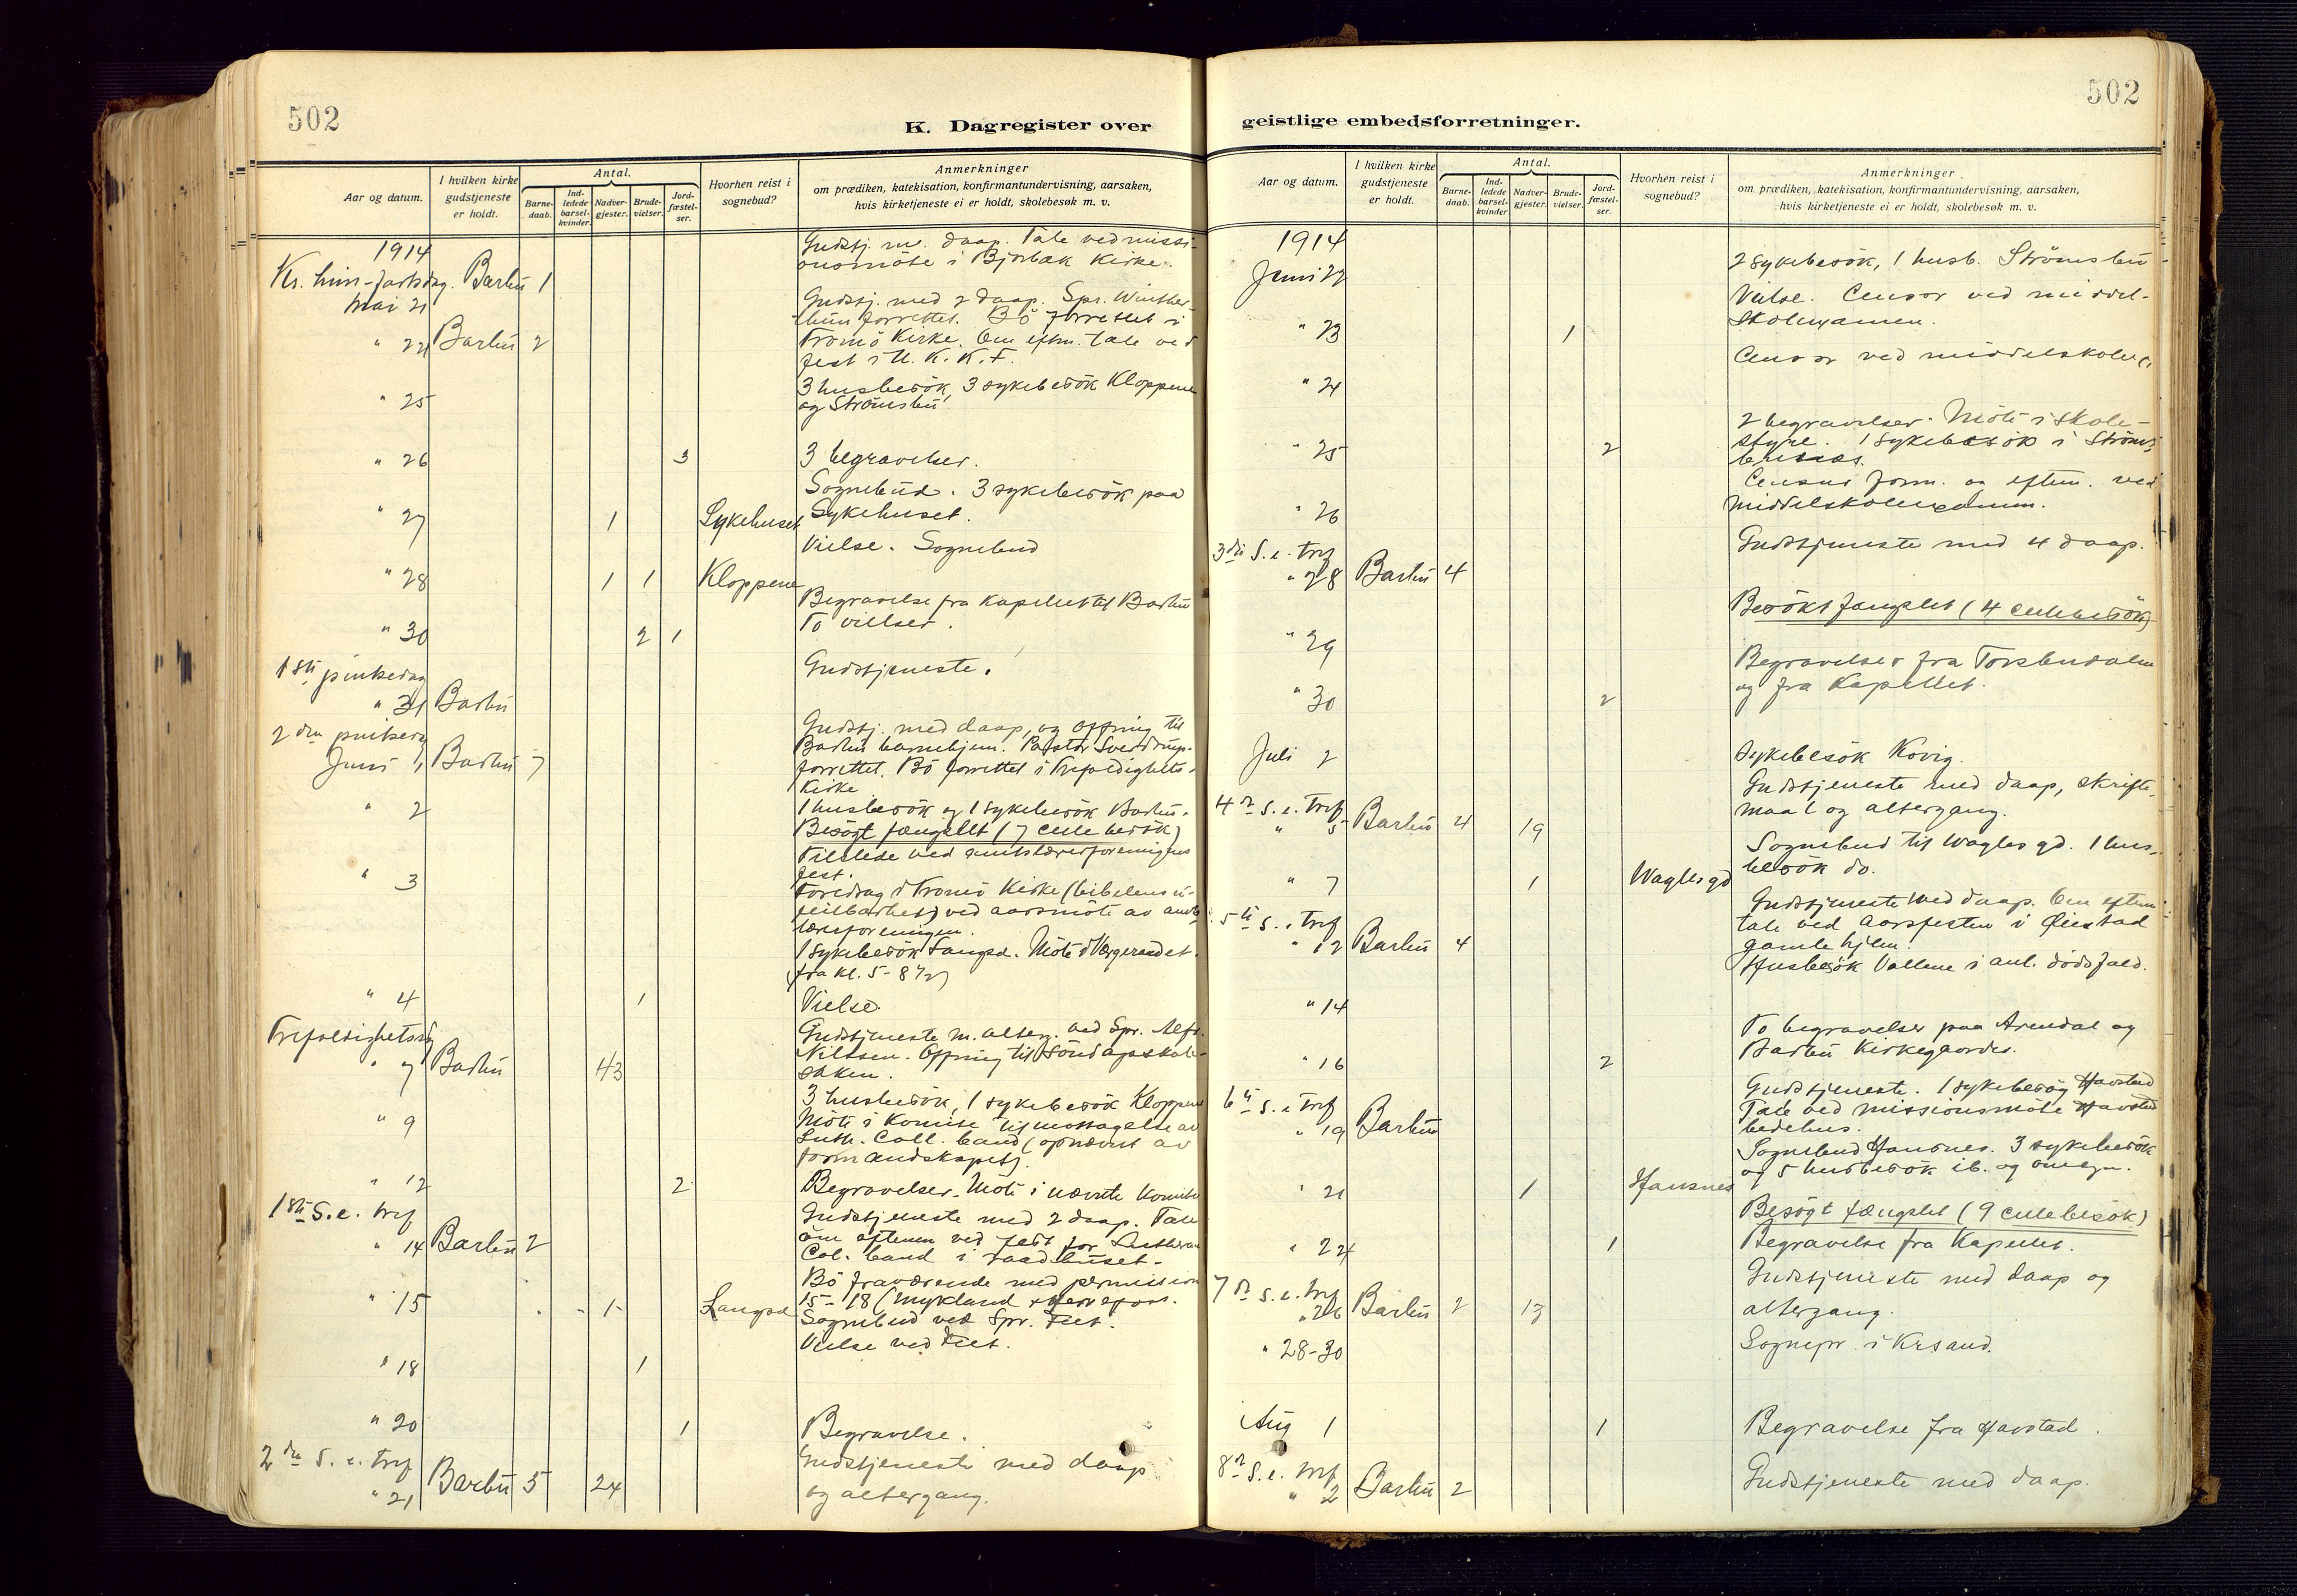 502
K. Dagregister over
Aar og datum.
I hvilken kirke gudstjeneste er holdt.
Antal.
Barne-daab.
Ind-ledede barsel-kvinder.
Nadver-gjester.
Brude-vielser.
Jord-fæstel-ser.
Hvorhen reist i sognebud?
Anmerkninger
om prædiken, katekisation, konfirmantundervisning, aarsaken,
hvis kirketjeneste ei er holdt, skolebesøk m. v.
1914
Gudstj. m. daap. Tale ved missi-
onsmöte i Bjorbæk Kirke.
Kr. him-fartsdag. Barbu 1
Mai 21
Gudstj. med 2 daap. Spr. Winther
forrettet. Bö forrettet i
" 24 Barbu 2
Tromö Kirke. Om eftm. tale ved
fest i U. K. K. F.
3 husbesök, 3 sykebesök Kloppene
" 25
og Strömsbu
" 26 3 3 begravelser.
Sognebud. 3 sykebesök paa
" 27 1 Sykehuset Sykehuset.
Vielse. Sognebud
" 28 1 1 Kloppene
Begravelse fra Kapellet til Barbu
" 30 2 1 To vielser.
1ste pinsedag Gudstjeneste.
" 31 Barbu
2den pinsedag Gudstj. med daap, og offring til
Juni 1 Barbu 7 Barbu barnehjem. Pastor Sverdrup
forrettet. Bö forrettet i Trefoldigheds-
Kirke
" 2 1 husbesök og 1 sykebesök Barbu.
Besögt fængslet (7 cellebesök)
Tilstede ved amtslærerforeningens
" 3 fest.
Foredrag i Tromö Kirke (bibelens u-
feilbarhet) ved aarsmöte av amts
lærerforeningen.
1 sykebesök Langsd. Möte i Vergeraadet
(fra kl. 5-8½)
" 4 1 Vielse.
Trefoldighetssd Gudstjeneste m. alterg. ved Spr. Alfr.
" 7 Barbu 43 Nilssen. Offring til söndagsskole-
saken.
3 husbesök, 1 sykebesök Kloppene
" 9 Möte i Komite til mottagelse av
Luth. Coll. band (opnævnt av
formandskapet).
" 12 2 Begravelser. Möte i nævnte Komite
1ste S.e. tref Gudstjeneste med 2 daap. Tale
" 14 Barbu 2 om eftenen ved fest for Lutheran
Col. band i raadhuset.
Bö fraværende med permission
" 15 1 Langsd 15-18 (Mykland
Sognebud ved Spr. Feet.
Vielse ved Feet.
" 18 1
" 20 1 Begravelse.
2den S. e. tref Gudstjeneste med daap
" 21 Barbu 5 24 og altergang.
502
geistlige embedsforretninger.
Aar og datum.
I hvilken kirke gudstjeneste er holdt.
Antal.
Barne-daab.
Ind-ledede barsel-kvinder
Nadver-gjester.
Brude-vielser.
Jord-fæstel-ser.
Hvorhen reist i sognebud?
Anmerkninger.
om prædiken, katekisation, konfirmantundervisning, aarsaken,
hvis kirketjeneste ei er holdt, skolebesøk m. v.
1914
Juni 22 2 sykebesök, 1 husb. Strömsbu
Vielse. Censor ved middel-
" 23 1 skolexamen.
Censor ved middelskole
" 24
2 begravelser. Möte i skole-
" 25 2 styre. 1 sykebesök i Ströms-
Censur form. og eftm. ved
" 26 middelskoleexamen.
3die S. e. tref Gudstjeneste med 4 daap.
" 28 Barbu 4
Besökt fængslet (4 cellebesök)
" 29
Begravelser fra Torsbudalen
" 30 2 og fra Kapellet.
Juli 2 Sykebesök Kovig.
Gudstjeneste med daap, skrifte-
4de S. e. Tref maal og altergang.
" 5 Barbu 4 19
Sognebud til Wagles gd. 1 hus-
" 7 1 Wagles gd besök do.
Gudstjeneste med daap. Om eftem
5te S. e. Tref tale ved aarsfesten i Öiestad
" 12 Barbu 4 gamle hjem.
Husbesök Vallene i anl. dödsfald.
" 14
To begravelser paa Arendal og
" 16 2 Barbu Kirkegaarder.
Gudstjeneste. 1 sykebesög Havstad
6te S. e. Tref Tale ved missionsmöte Havstad
" 19 Barbu bedehus.
Sognebud Hansnes. 3 sykebesök
og 5 husbesök ib. og omegn.
" 21 1 Hansnes
Besögt fængslet (9 cellebesök)
" 24 1 Begravelse fra Kapellet.
7de S. e. tref Gudstjeneste med daap og
" 26 Barbu 2 13 altergang.
" 28-30 Sognepr. i Krsand.
Aug 1 1 Begravelse fra Havstad.
8de S. e. tref Gudstjeneste med daap.
" 2 Barbu 2